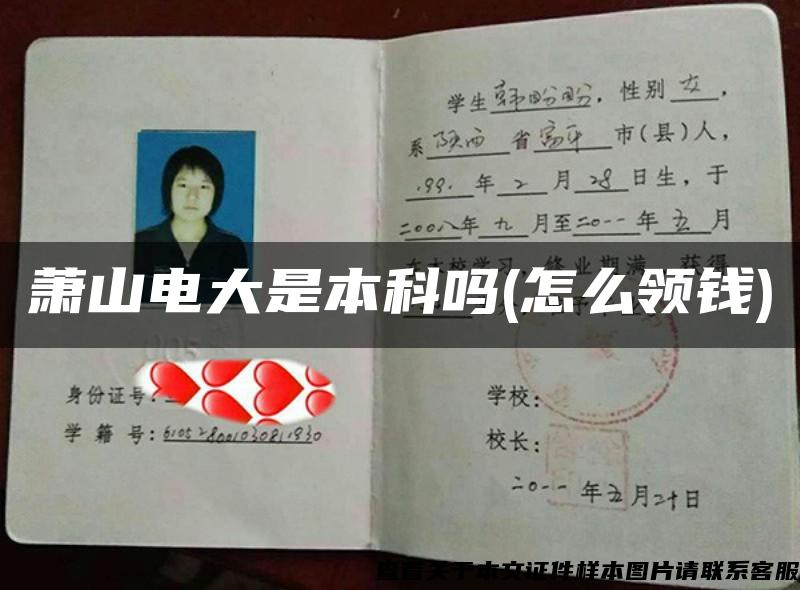 学生韩盼盼，性别女，
系陕西省富平市(县)人，
1991年2月28日生，于
二00八年九月至二0一一年五月
在本校学习，修业期满，获得
萧山电大是本科吗(怎么领钱)
身份证号：
学籍号：6105280010308111930
学校：
校长：
二0一一年五月二十日
查看关于本文证件样本图片请联系客服